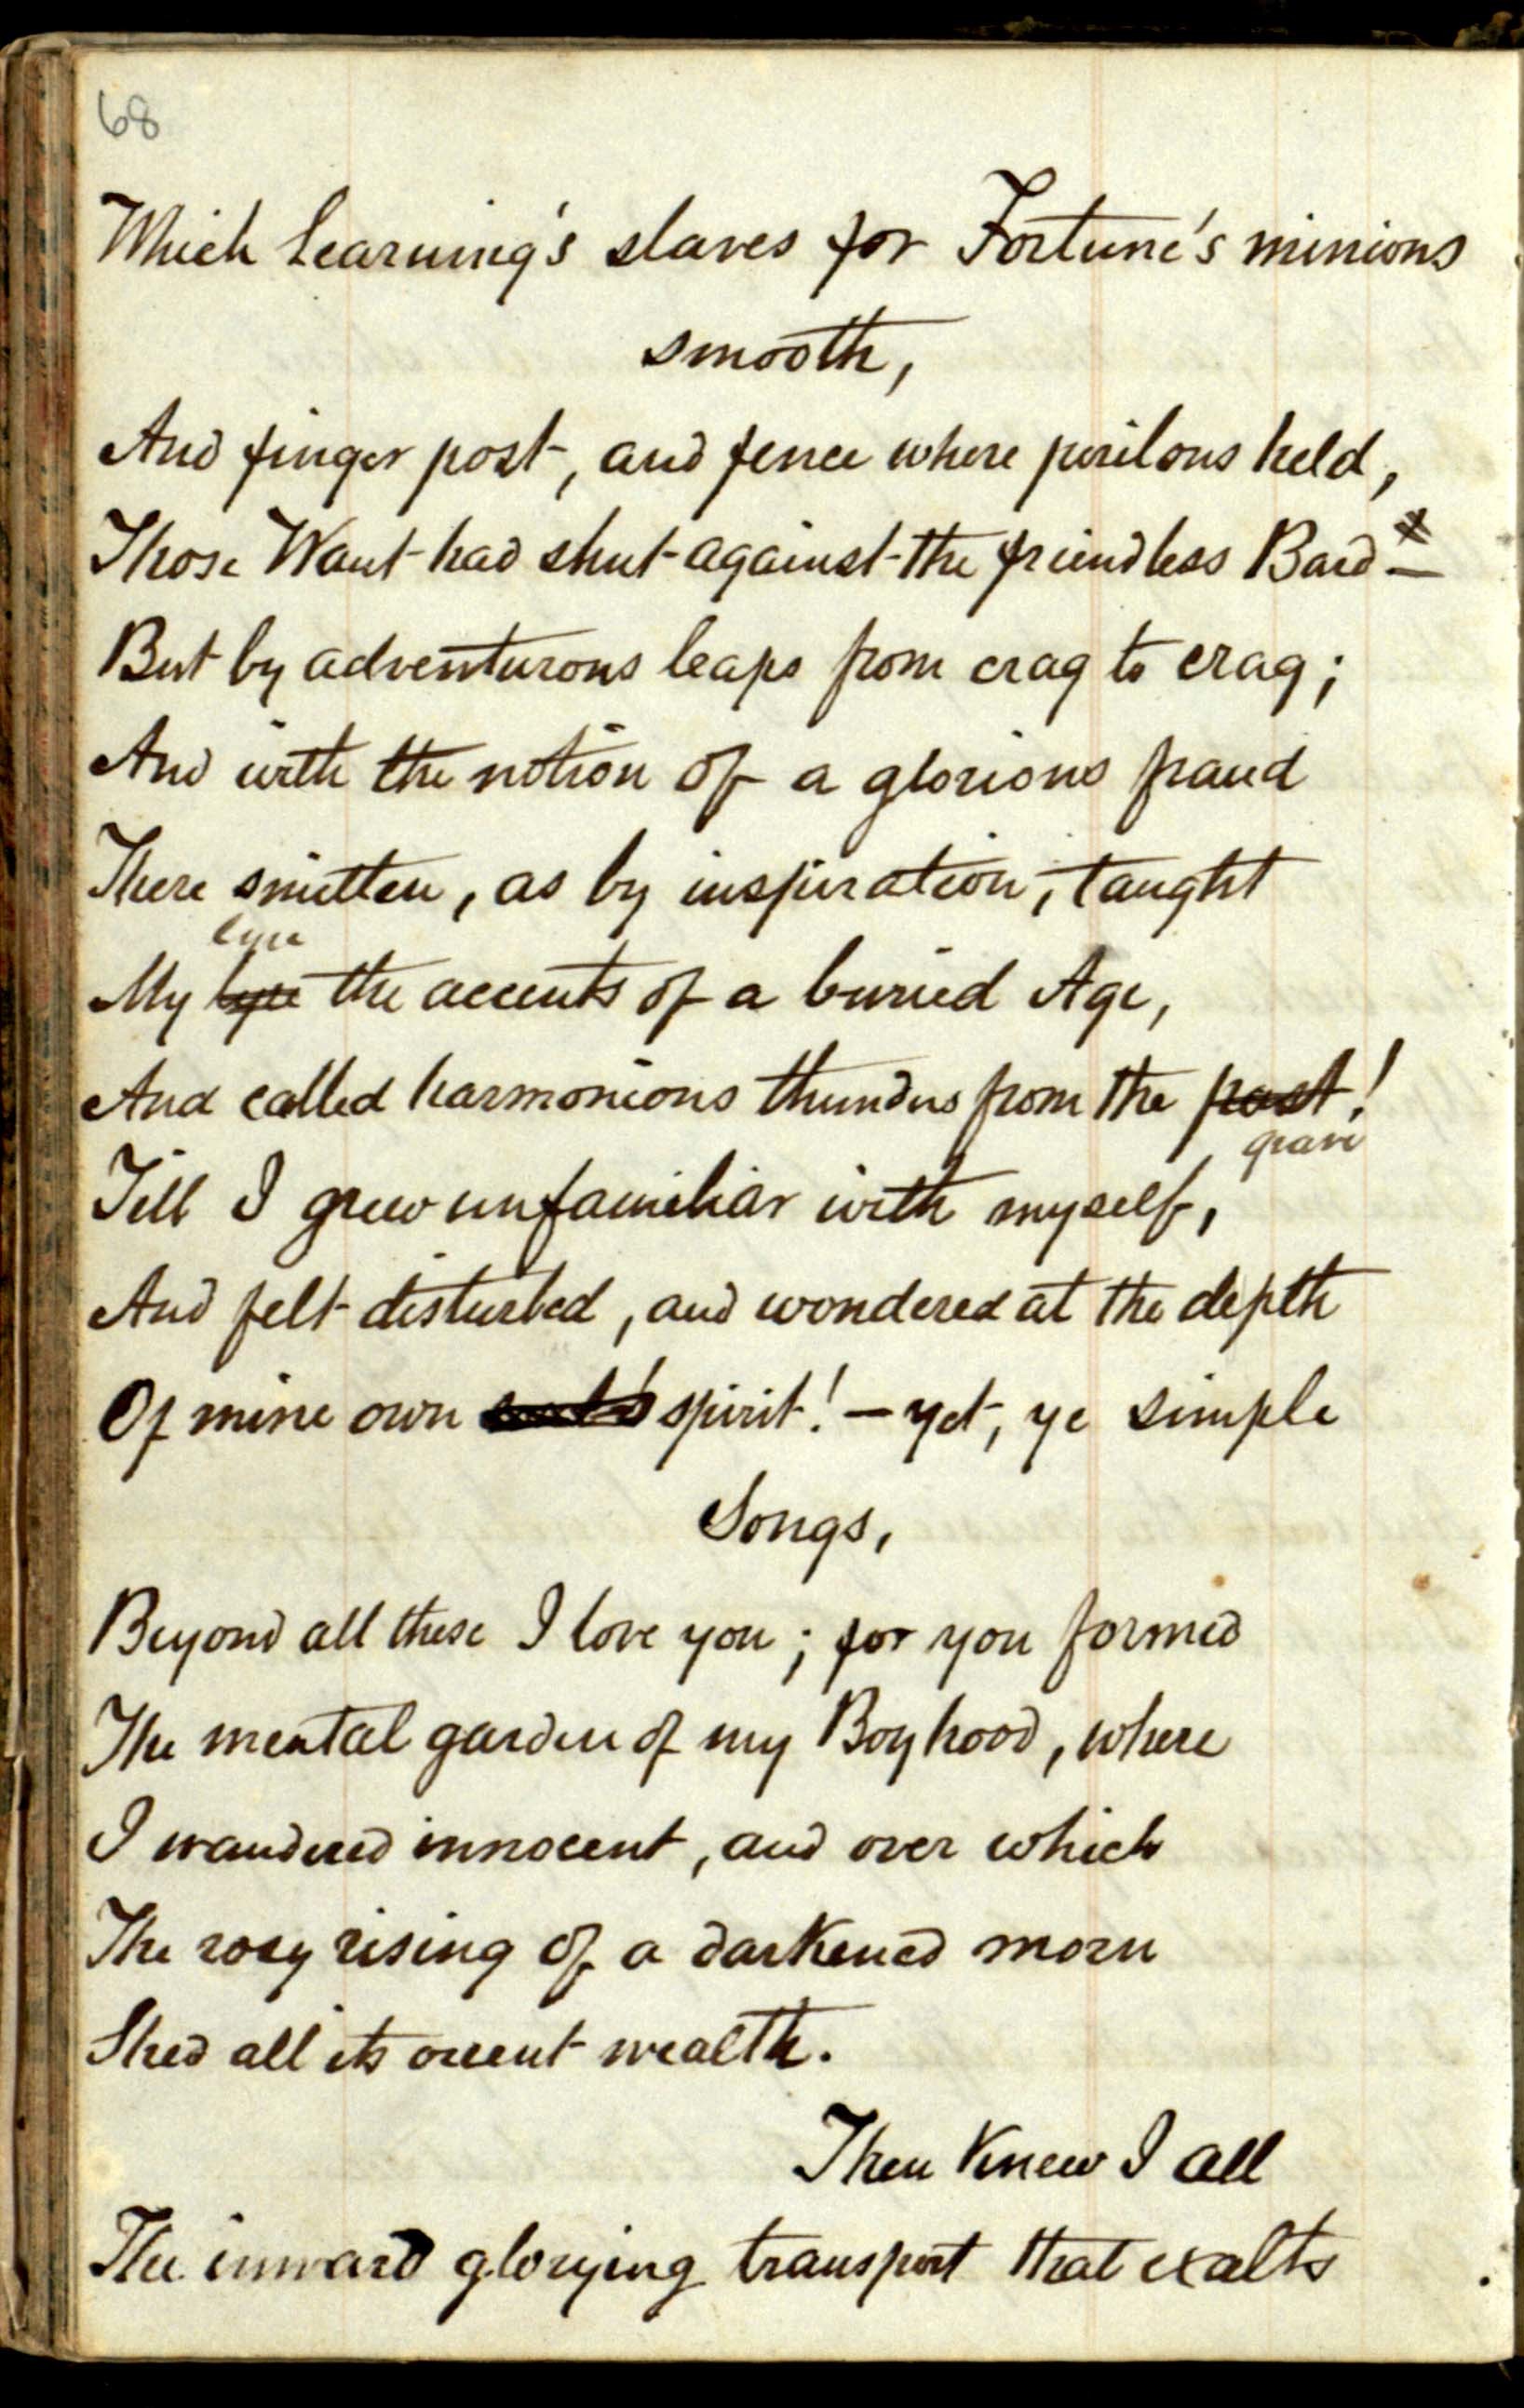 68
Which Learning's slaves for Fortune's minions
smooth,
And finger post, and fence where perilous held,
Those Want had shut against the friendless Bard —
But by adventurous leaps from crag to crag;
And with the notion of a glorious fraud
There smitten, as by inspiration, taught
lyre
My lyre the accents of a buried Age,
And called harmonious thunders from the past!
grave
Till I grew unfamiliar with myself,
And felt disturbed, and wondered at the depth
Of mine own spirit! — yet, ye simple
Songs,
Beyond all these I love you; for you formed
The mental garden of my Boyhood, where
I wandered innocent, and over which
The rosy rising of a darkened morn
Shed all its orient wealth.
Then Knew I all
The inward glorying transport that exalts